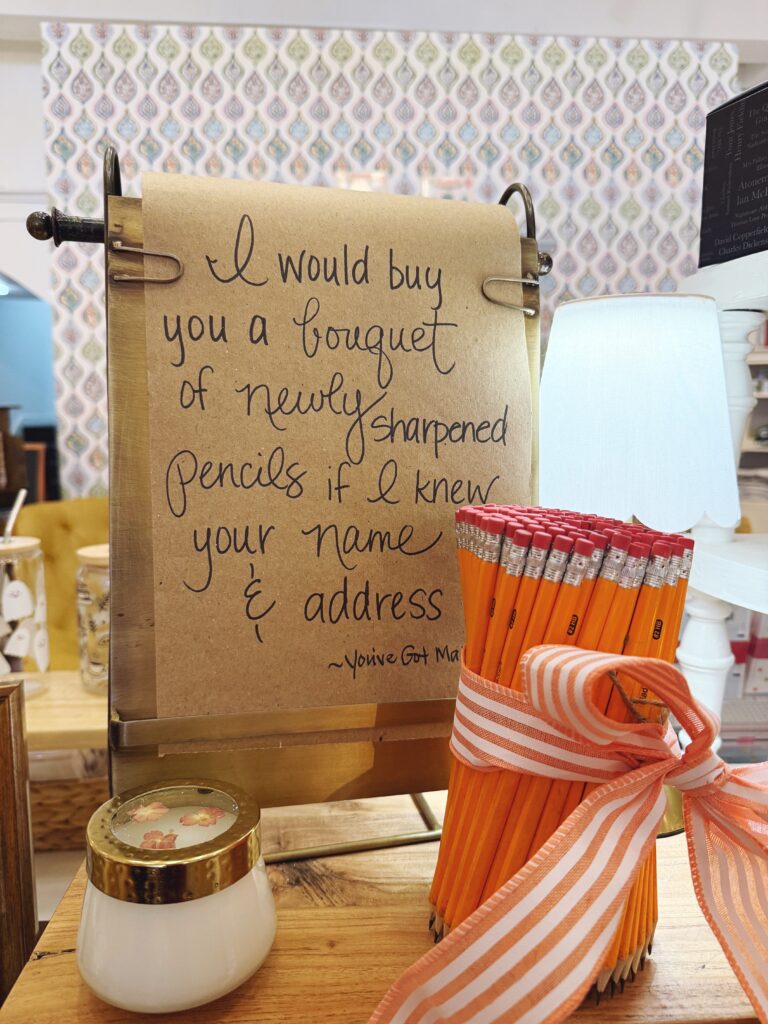 I would buy
you a bouquet
of newly sharpened
pencils if I knew
your name
& address
~You've Got Ma
Atonem
Ian McE
David Copperfield
Charles Dickens